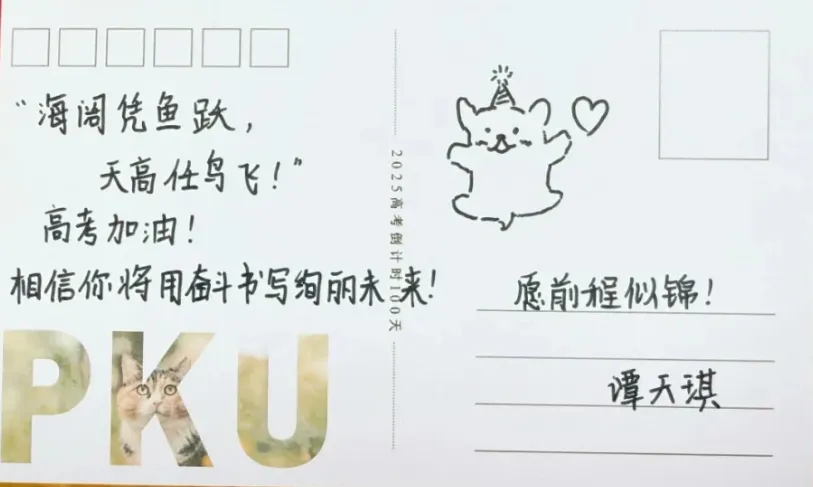 “海阔凭鱼跃，
天高任鸟飞！”
高考加油！
相信你将用奋斗书写绚丽未来！
PKU
2025高考倒计时100天
愿前程似锦！
谭天琪